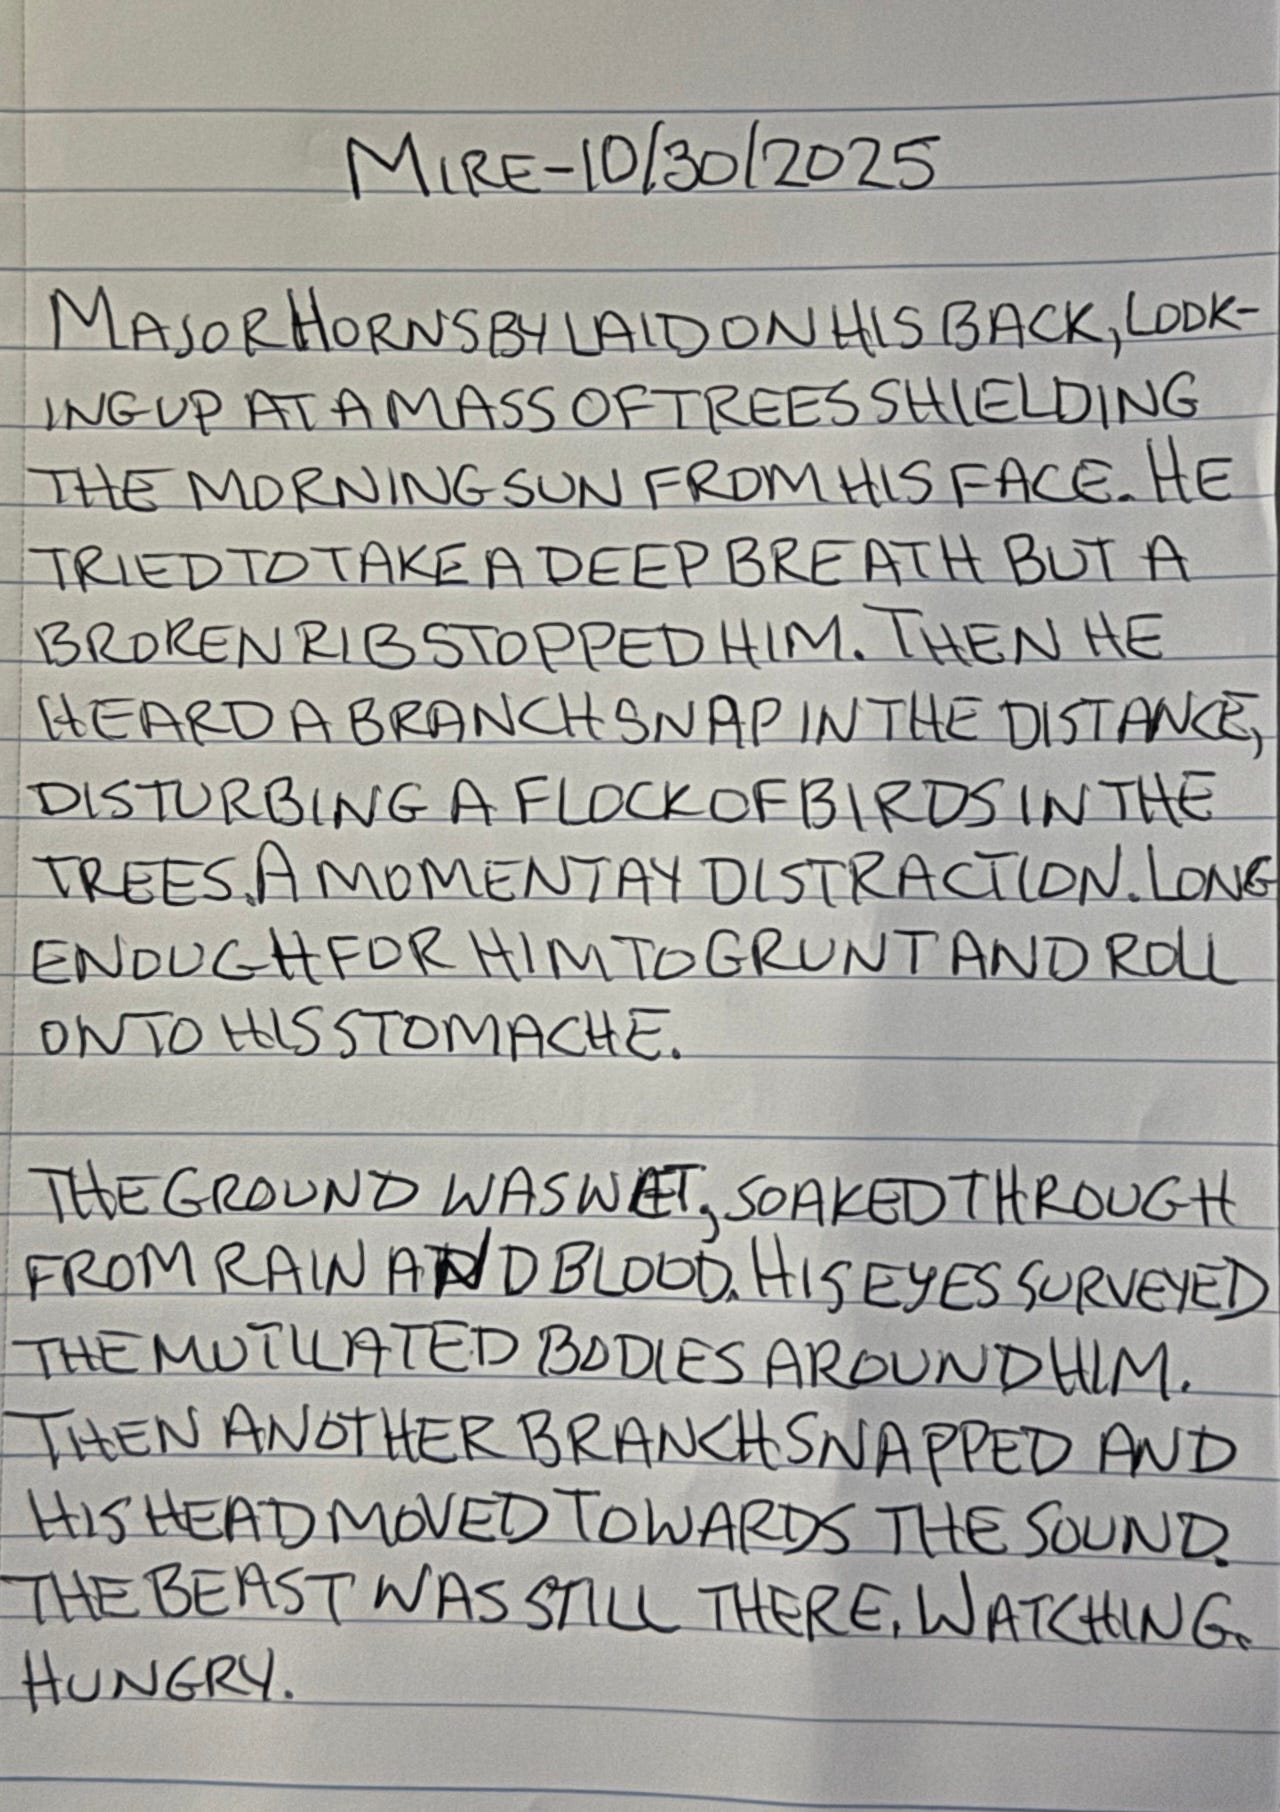 MIRE-10/30/2025
MAJOR HORNSBY LAID ON HIS BACK, LOOK-
ING UP AT A MASS OF TREES SHIELDING
THE MORNING SUN FROM HIS FACE. HE
TRIED TO TAKE A DEEP BREATH BUT A
BROKEN RIB STOPPED HIM. THEN HE
HEARD A BRANCH SNAP IN THE DISTANCE,
DISTURBING A FLOCK OF BIRDS IN THE
TREES. A MOMENTAY DISTRACTION. LONG
ENOUGH FOR HIM TO GRUNT AND ROLL
ONTO HIS STOMACHE.
THE GROUND WAS WET, SOAKED THROUGH
FROM RAIN AND BLOOD. HIS EYES SURVEYED
THE MUTILATED BODIES AROUND HIM.
THEN ANOTHER BRANCH SNAPPED AND
HIS HEAD MOVED TOWARDS THE SOUND.
THE BEAST WAS STILL THERE. WATCHING.
HUNGRY.